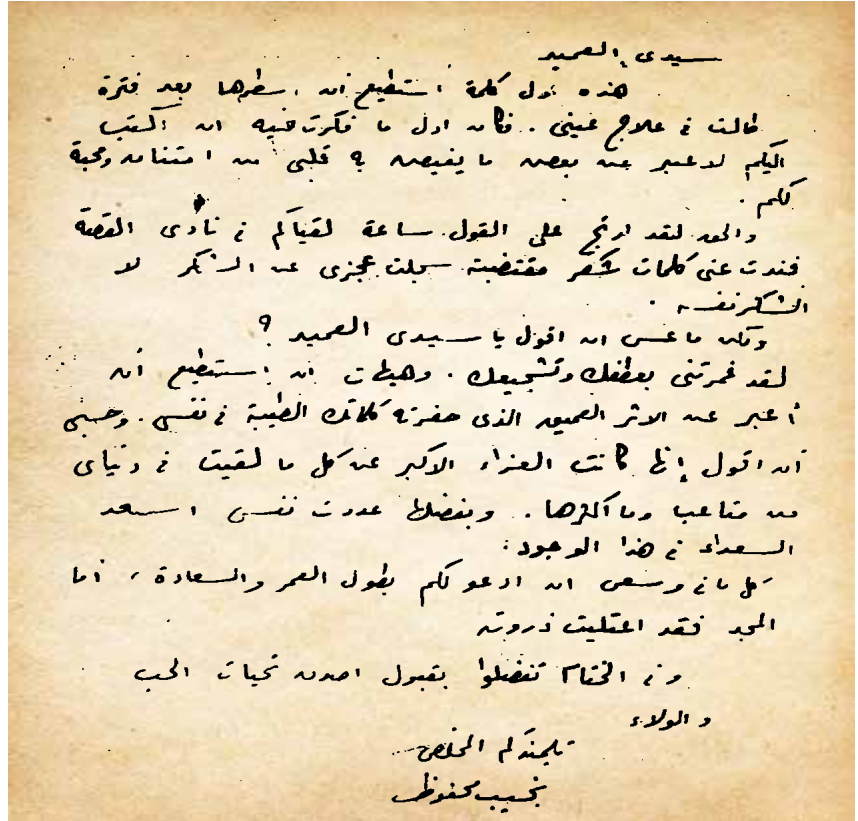 سيدى العميد
هذه أول كلمة استطيع ان اسطرها بعد فترة
طالت فى علاج عينى . فكان اول ما فكرت فيه ان اكتب
اليكم لا عبر عن بعض ما يفيض به قلبى من امتنان ومحبة
لكم .
والحق لقد ارتج على القول ساعة لقياكم فى نادى القصة
فندت عنى كلمات شكر مقتضبة سجلت عجزى عن الشكر لا
الشكر نفسه .
ولكن ما عسى ان اقول يا سيدى العميد ؟
لقد غمرتنى بعطفك وتشجيعك . وهيهات ان استطيع أن
أعبر عن الاثر العميق الذى حفرته كلماتك الطيبة فى نفسى . وحسبى
أن اقول إنها كانت العزاء الاكبر عن كل ما لقيت فى دنياى
من متاعب وما اكثرها . وبفضلها عددت نفسى اسعد
السعداء فى هذا الوجود .
كل ما فى وسعى ان ادعو لكم بطول العمر والسعادة ، أما
المجد فقد اعتليت ذروته
وفى الختام تفضلوا بقبول اصدق تحيات الحب
والولاء
تلميذكم المخلص
نجيب محفوظ